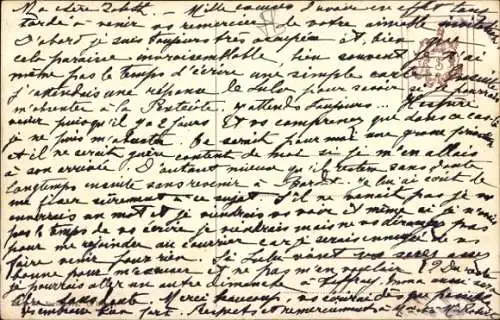 Ma chère Mille excuses d'avoir en effet tant
tardé à venir vous remercier de votre aimable invitation
D'abord je suis toujours très occupée et, bien que
cela paraisse invraisemblable, bien souvent j'ai
même pas le temps d'écrire une simple carte Ensuite
j'attendais une réponse de Lulu pour savoir si je pourrais
m'absenter à la Pentecôte, j'attends toujours...
venir puisqu'il y a 2 jours Et vos comprenez que dans ce cas-là
je ne puis m'absenter. Ce serait pour moi une grosse privation
et il ne serait guère content de moi si je m'en allais
à son arrivée. D'autant mieux qu'il restera sans doute
longtemps ensuite sans revenir à Je lui ai écrit de
me fixer sûrement à ce sujet. S'il ne venait pas je vous
enverrais un mot et je viendrais vous voir si même si je n'avais
pas le temps de vous écrire je viendrais mais ne vous dérangez pas
pour me rejoindre au courrier car je serais ennuyée de vous
faire venir pour rien. Si Lulu vient vous serez assez
bonne pour m'excuser et ne pas m'en vouloir !? Du reste
je pourrais aller un autre dimanche à
Merci beaucoup, vous
bien fort. Respects et remerciements à